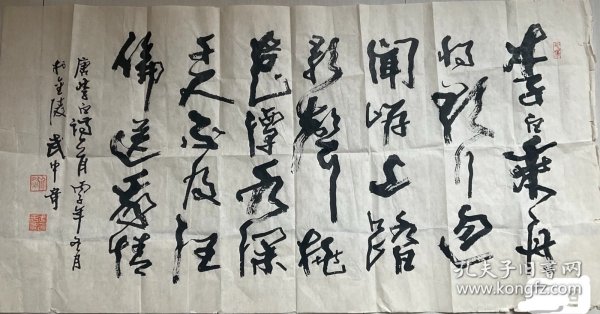 李白乘舟
将欲行忽
闻岸上踏
歌声桃
花潭水深
千尺不及汪
伦送我情
唐李白诗一首 丙子年冬月
于金陵 武中奇
孔夫子旧书网
www.kongfz.com